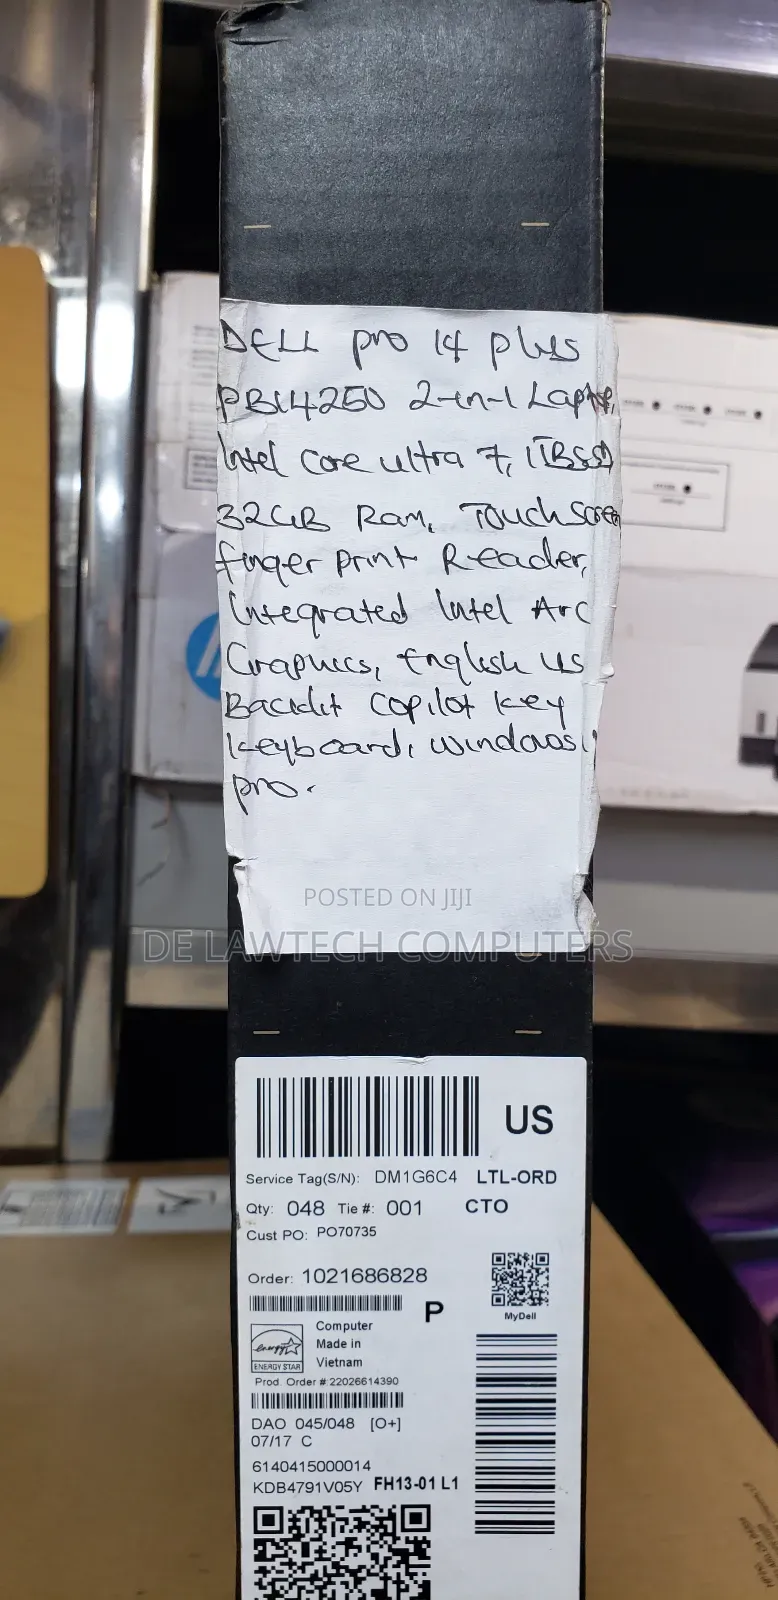 DELL pro 14 plus
PB14250 2-in-1 Laptop,
Intel Core ultra 7, 1TBSSD
32GB Ram, Touchscreen
finger print Reader,
Integrated Intel Arc
Graphics, English US
Backlit Copilot Key
Keyboard, windows 11
pro.
POSTED ON JIJI
DE LAWTECH COMPUTERS
US
Service Tag(S/N): DM1G6C4 LTL-ORD
Qty: 048 Tie #: 001 CTO
Cust PO: PO70735
Order: 1021686828
MyDell
P
Computer
Made in
Vietnam
energy
ENERGY STAR
Prod. Order #:22026614390
DAO 045/048 [O+]
07/17 C
6140415000014
KDB4791V05Y FH13-01 L1
hp